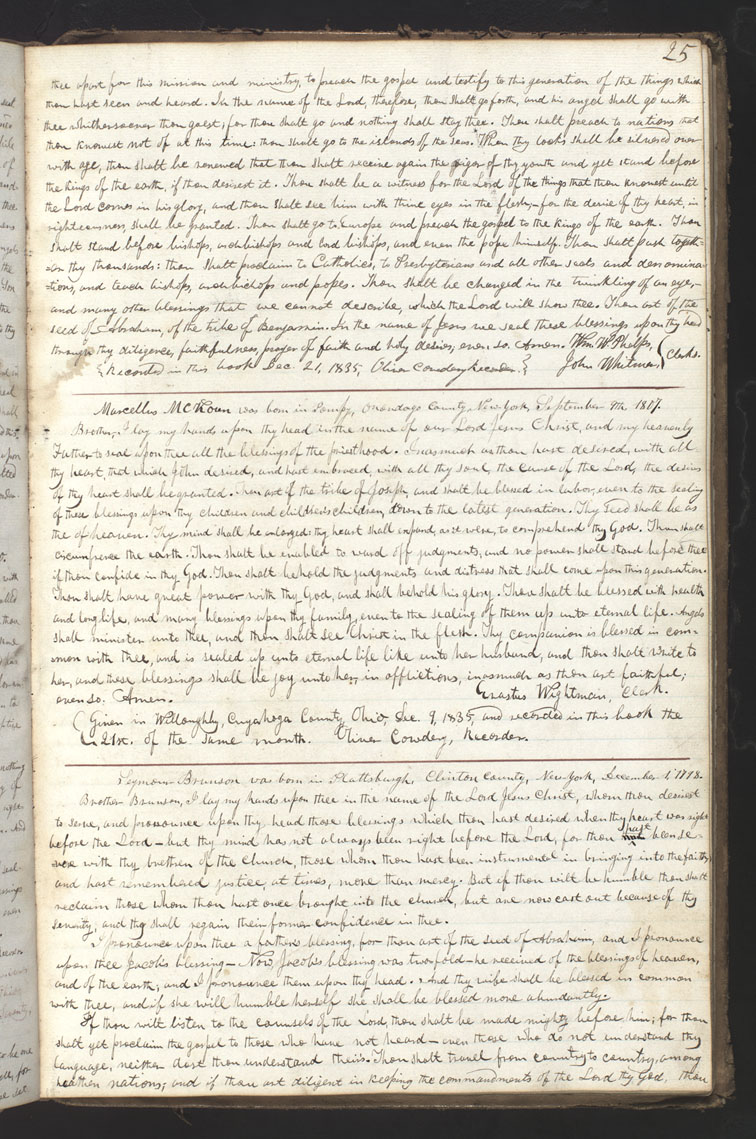 25
thee apart for this mission and ministry, to preach the gospel and testify to this generation of the things which
thou hast seen and heard. In the name of the Lord, therefore, thou shalt go forth, and his angel shall go with
thee whithersoever thou goest; for thou shalt go and nothing shall stay thee. Thou shall preach to nations that
thou knowest not of at this time: thou shalt go to the islands of the seas. When thy locks shall be silvered over
with age, thou shalt be renewed that thou shalt receive again the vigor of thy youth and yet stand before
the kings of the earth, if thou desirest it. Thou shalt be a witness for the Lord of the things that thou knowest until
the Lord comes in his glory, and thou shalt see him with thine eyes in the flesh,— for the desire of thy heart, in
righteousness, shall be granted. Thou shalt go to Europe and preach the gospel to the kings of the earth. Thou
shalt stand before bishops, archbishops and lord bishops, and even the pope himself. Thou shalt push togeth-
=er thy thousands: thou shalt proclaim to Catholics, to Presbyterians and all other sects and denomina-
=tions, and teach bishops, archbishops and popes. Thou shall be changed in the twinkling of an eye,—
and many other blessings that we cannot describe, which the Lord will show thee. Thou art of the
seed of Abraham, of the tribe of Benjamin. In the name of Jesus we seal these blessings upon thy head
through thy diligence, faithfulness, prayer of faith and holy desires, even so. Amen. Wm. W. Phelps,
{Recorded in this book Dec. 21, 1835, Oliver Cowdery Recorder.} John Whitmer, } Clerks.
Marcellus McKown was born in Pompy, Onondago County, New York, September 9th, 1807.
Brother, I lay my hands upon thy head in the name of our Lord Jesus Christ, and my heavenly
Father to seal upon thee all the blessings of the priesthood. Inasmuch as thou hast desired, with all
thy heart, that which John desired, and hast embraced, with all thy soul, the cause of the Lord, the desires
of thy heart shall be granted. Thou art of the tribe of Joseph, and shalt be blessed in labor, even to the sealing
of these blessings upon thy children and children's children, down to the latest generation. Thy seed shall be as
the of heaven. Thy mind shall be enlarged: thy heart shall expand, as it were, to comprehend thy God. Thou shalt
circumference the earth. Thou shalt be enabled to ward off judgments, and no power shall stand before thee
if thou confide in thy God. Thou shalt behold the judgments and distress that shall come upon this generation.
Thou shalt have great power with thy God, and shall behold his glory. Thou shalt be blessed with health
and long life, and many blessings upon thy family, even to the sealing of them up unto eternal life. Angels
shall minister unto thee, and thou shalt see Christ in the flesh. Thy companion is blessed in com-
=mon with thee, and is sealed up unto eternal life like unto her husband, and thou shalt write to
her, and these blessings shall be joy unto her, in afflictions, inasmuch as thou art faithful;
even so. Amen. Erastus Wightman, Clerk.
{Given in Willoughby, Cuyahoga County, Ohio, Dec. 9, 1835, and recorded in this book the
21st. of the same month. Oliver Cowdery, Recorder.
Seymour Brunson was born in Plattsburgh, Clinton County, New-York, December 1, 1798.
Brother Brunson, I lay my hands upon thee in the name of the Lord Jesus Christ, whom thou desirest
to serve, and pronounce upon thy head those blessings which thou hast desired when thy heart was right
before the Lord— but thy mind has not always been right before the Lord, for thou hast been se-
vere with thy brethren of the church, those whom thou hast been instrumental in bringing into the faith,
and hast remembered justice, at times, more than mercy. But if thou will be humble thou shalt
reclaim those whom thou hast once brought into the church, but are now cast out because of thy
severity, and they shall regain their former confidence in thee.
I pronounce upon thee a father's blessing, for thou art of the seed of Abraham, and I pronounce
upon thee Jacob's blessing— Now, Jacob's blessing was two-fold— he received of the blessings of heaven,
and of the earth; and I pronounce them upon thy head. And thy wife shall be blessed in common
with thee, and if she will humble herself she shall be blessed more abundantly.
If thou wilt listen to the counsels of the Lord, thou shalt be made mighty before him; for thou
shalt yet proclaim the gospel to those who have not heard— even those who do not understand thy
language, neither dost thou understand theirs. Thou shalt travel from country to country, among
heathen nations; and if thou art diligent in keeping the commandments of the Lord thy God, thou